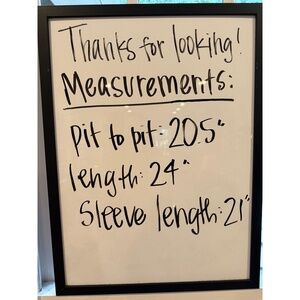 Thanks for looking!
Measurements:
pit to pit: 20.5"
length: 24"
Sleeve length: 21"